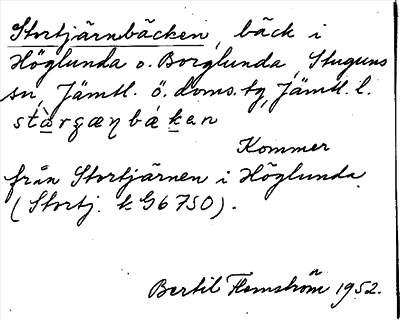 Stortjärnbäcken, bäck i
Höglunda o. Borglunda Stuguns
sn, Jämtl. ö. doms. tg, Jämtl. l.
Kommer
från Stortjärnen i Höglunda
(Stortj. k G6 7SO).
Bertil Flemström 1952.